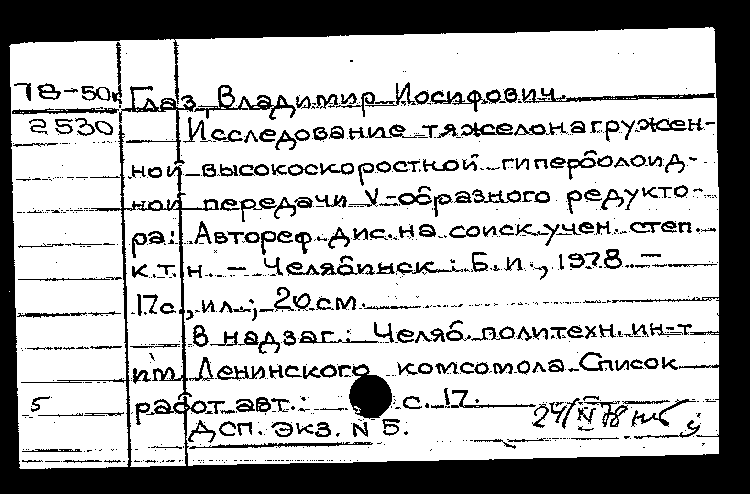 78-50г Глаз, Владимир Иосифович.
2530 Исследование тяжелонагружен-
ной высокоскоростной гиперболоид-
ной передачи V-образного редукто-
ра: Автореф. дис. на соиск. учен. степ.
к.т.н. - Челябинск : Б.и., 1978 -
17с., ил.; 20 см.
В надзаг.: Челяб. политехн. ин-т
им. Ленинского комсомола. Список
5 работ авт.: с. 17.
ДСП. Экз. N 5. 24/IV 78